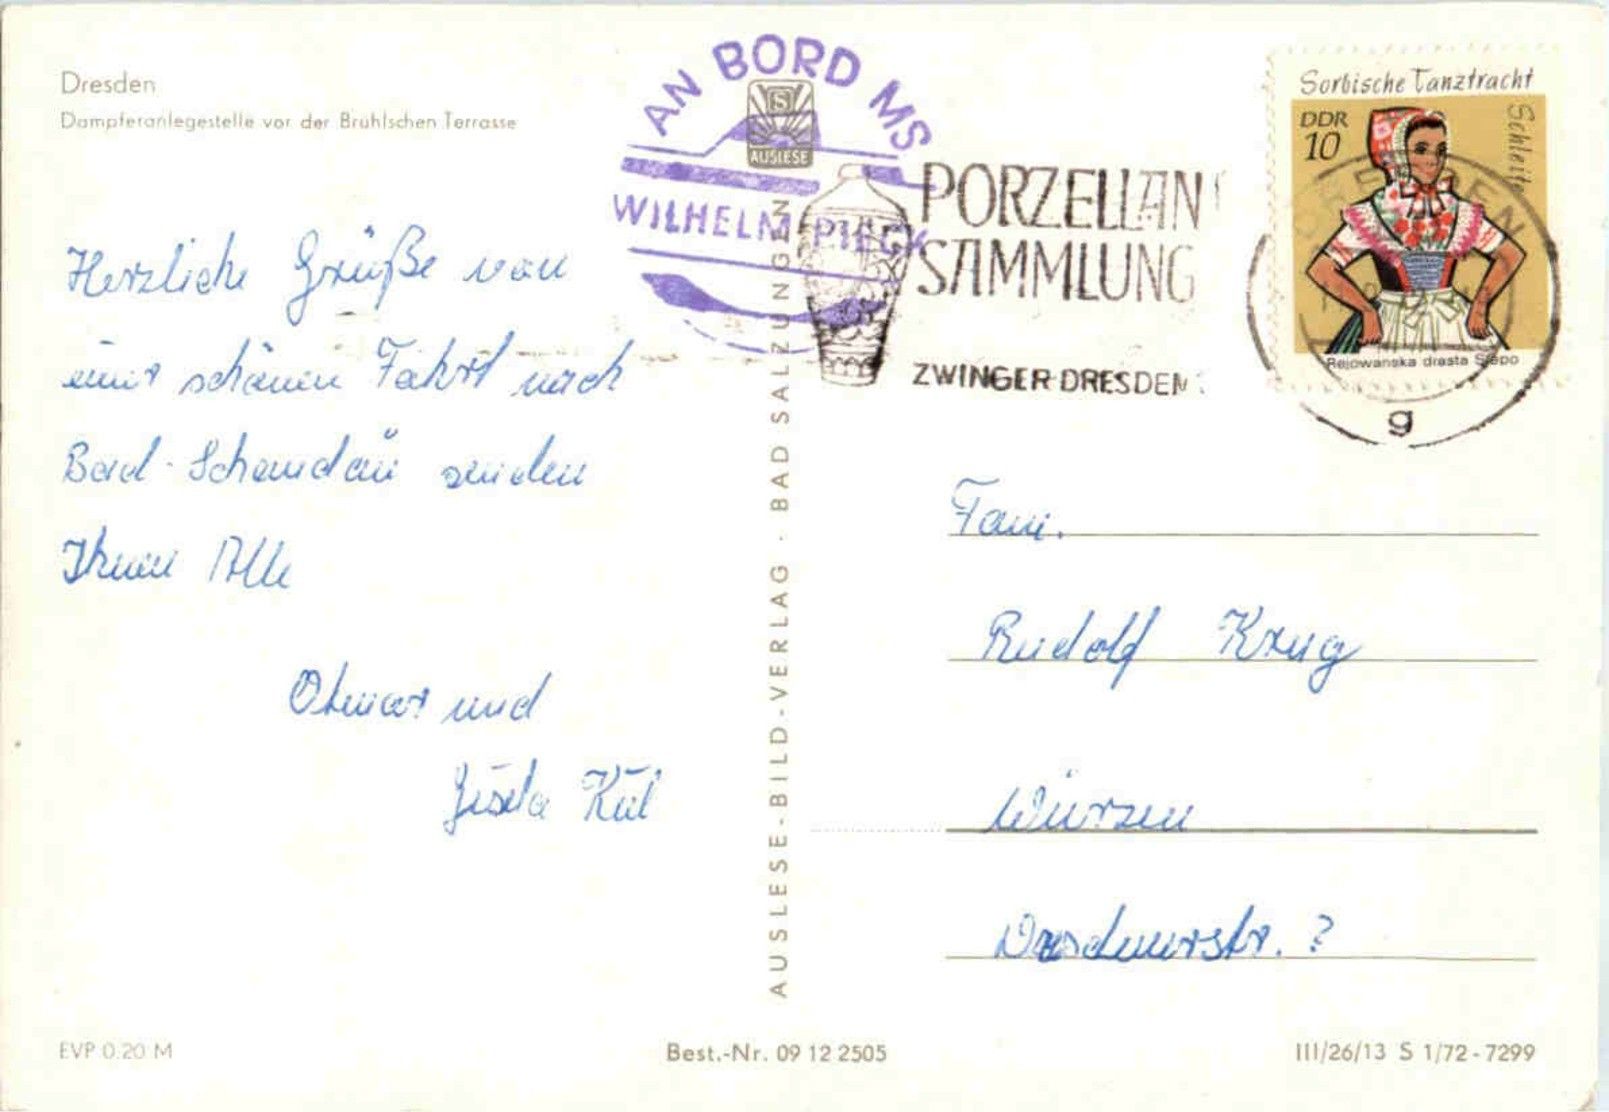 Dresden
Dampferanlegestelle vor der Brühlschen Terrasse
AN BORD MS
WILHELM PIECK
S
AUSLESE
PORZELLAN
SAMMLUNG
ZWINGER DRESDEN
Sorbische Tanztracht
Schleife
DDR
10
Rejowanska drasta Slepo
DRESDEN
g
Herzliche Grüße von
einer schönen Fahrt nach
Bad-Schandau senden
Ihnen Alle
Otmar und
Gisela
Fam.
Rudolf Krug
Wurzen
Dresdnerstr. ?
AUSLESE-BILD-VERLAG · BAD SALZUNGEN
EVP 0.20 M
Best.-Nr. 09 12 2505
III/26/13 S 1/72-7299